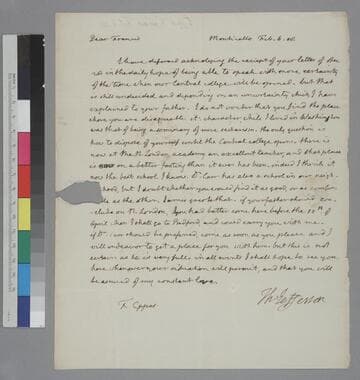 Dear Francis
Monticello Feb. 6. 18.
I have deferred acknoleging the receipt of your letter of
in the daily hope of being able to speak with more certainty
of the time when our Central college will be opened. but that
is still undecided and depending on an uncertainty which I have
explained to your father. I do not wonder that you find the place
where you are disagreeable. it's character while I lived in Washington
was that of being a seminary of mere sectarism. the only question is
how to dispose of yourself until the Central college opens. there is
now at the N. London academy an excellent teacher and that place
is on a better footing than it ever has been, indeed I think it
now the best school I know. Dr. Carr has also a school in our neigh-
hood, but I doubt whether you would find it as good, or as comfor-
as the other. if your father should con-
clude on N. London you had better come here before the 10th of
April when I shall go to Bedford and could carry you with me.
if Dr. should be preferred, come as soon as you please and I
will endeavor to get a place for you with him. but this is not
certain as he is very full. in all events I shall hope to see you
here whenever your situation will permit, and that you will
be assured of my constant love.
Th: Jefferson
F. Eppes